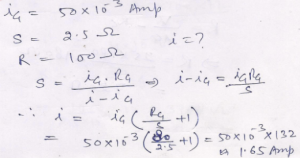 iG = 50×10⁻³ Amp
S = 2.5 Ω
R = 100 Ω i = ?
S = iG · RG / i − iG ⇒ i − iG = iG RG / S
∴ i = iG ( RG / S + 1 )
= 50×10⁻³ ( / 2.5 + 1 ) = 50×10⁻³ × 132
1.65 Amp